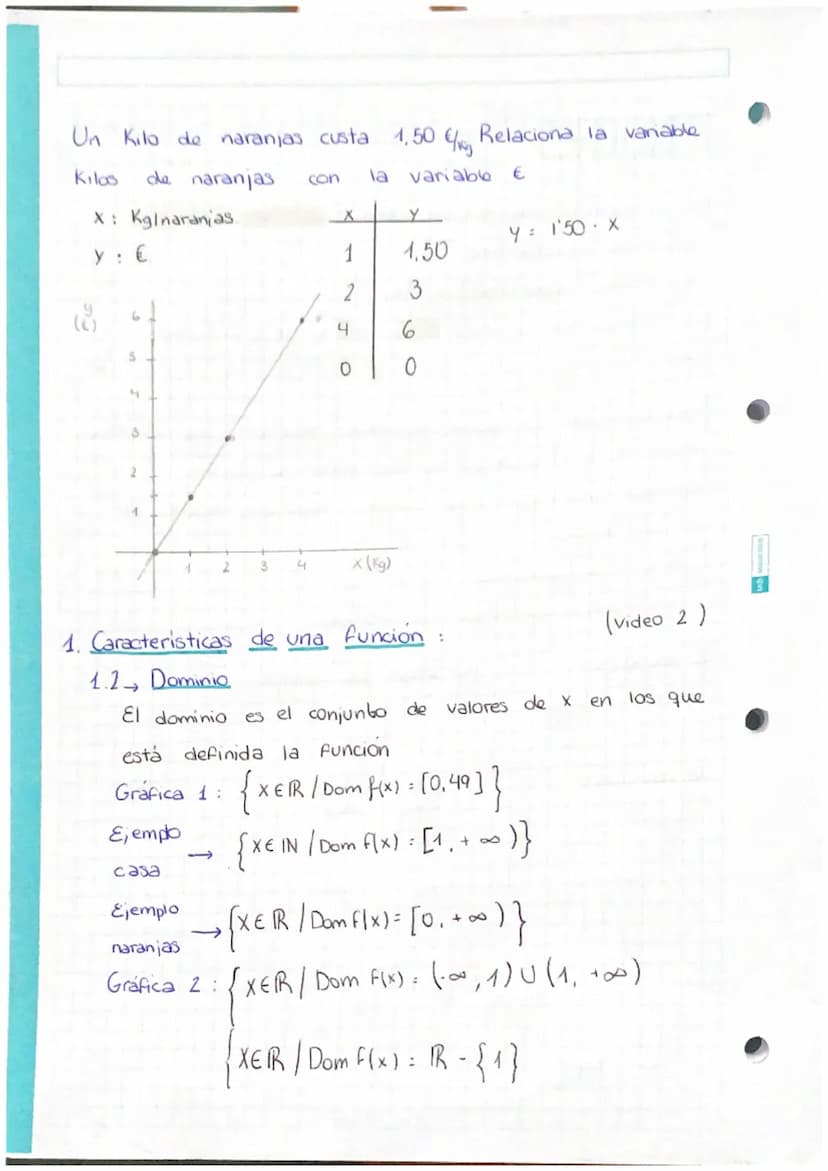 Un Kilo de naranjas custa 1,50 €/Kg Relaciona la variable
Kilos de naranjas con la variable €
X : Kg/naranjas
y : €
X y
1 1,50
2 3
4 6
0 0
y = 1'50 · X
y
(€)
6
5
4
3
2
1
1 2 3 4 X (Kg)
(video 2)
1. Características de una función :
1.2→ Dominio
El dominio es el conjunto de valores de x en los que
está definida la función
Gráfica 1 : { X ∈ ℝ / Dom f(x) = [0,49] }
Ejemplo
casa → { X ∈ ℕ / Dom f(x) = [1, + ∞) }
Ejemplo
naranjas → { X ∈ ℝ / Dom f(x) = [0, + ∞) }
Gráfica 2 : { X ∈ ℝ / Dom f(x) = (-∞, 1) ∪ (1, +∞)
{ X ∈ ℝ / Dom f(x) = ℝ - {1}